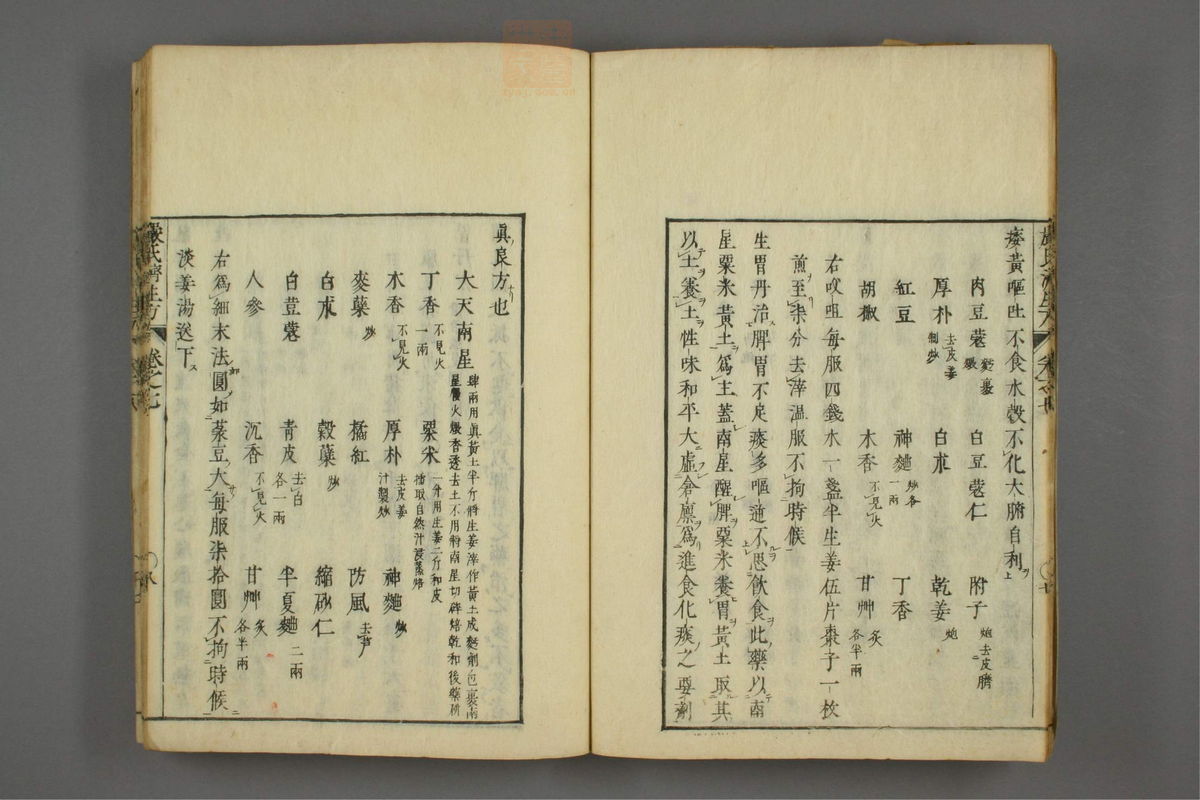 痿黃嘔吐不食水穀不化大腑自利
肉豆蔻 麪裹煨 白豆蔻仁 附子 炮去皮臍
厚朴 去皮姜制炒 白朮 乾姜 炮
紅豆 神麯 炒各一兩 丁香
胡椒 木香 不見火 甘艸 炙各半兩
右㕮咀每服四錢水一盞半生姜伍片棗子一枚
煎至柒分去滓溫服不拘時候
生胃丹治脾胃不足痰多嘔逆不思飲食此藥以南
星粟米黃土爲主蓋南星醒脾粟米養胃黃土取其
以土養土性味和平大虛倉廩爲進食化痰之要劑
嚴氏濟生方 卷之七 〇七
眞良方也
大天南星 肆兩用眞黃土半斤將生姜滓作黃土成麪劑包裹南星慢火煨香透去土不用將南星切碎焙乾和後藥研
丁香 不見火一兩 粟米 一升用生姜二斤和皮擂取自然汁浸蒸焙
木香 不見火 厚朴 去皮姜汁製炒 神麯 炒
麥蘗 炒 橘紅 防風 去芦
白朮 穀蘗 炒 縮砂仁
白荳蔻 青皮 去白各一兩 半夏麯 二兩
人參 沉香 不見火 甘艸 炙各半兩
右爲細末法圓如菉豆大每服柒拾圓不拘時候
淡姜湯送下
嚴氏濟生方 卷之七 〇八